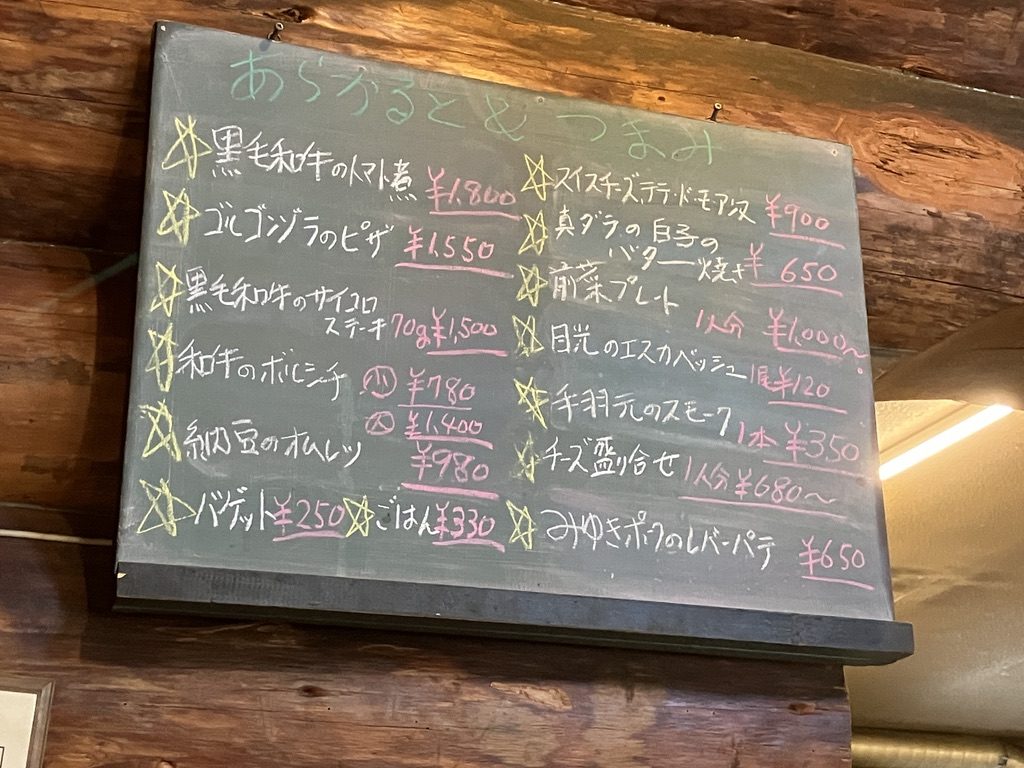 あらかると & つまみ
☆黒毛和牛のトマト煮 ¥1,800
☆ゴルゴンゾラのピザ ¥1,550
☆黒毛和牛のサイコロ
ステーキ 70g ¥1,500
☆和牛のボルシチ 小 ¥780
大 ¥1,400
☆納豆のオムレツ ¥980
☆バゲット ¥250 ☆ごはん ¥330
☆スイスチーズ、テテ・ド・モアンヌ ¥900
☆真ダラの白子の
バター焼き ¥650
☆前菜プレート
1人分 ¥1,000〜
☆目光のエスカベッシュ 1尾 ¥120
☆手羽元のスモーク 1本 ¥350
☆チーズ盛り合せ 1人分 ¥680〜
☆みゆきポークのレバーパテ ¥650